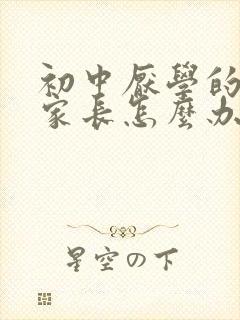 初中厭學的
家長怎麼办
星空の下